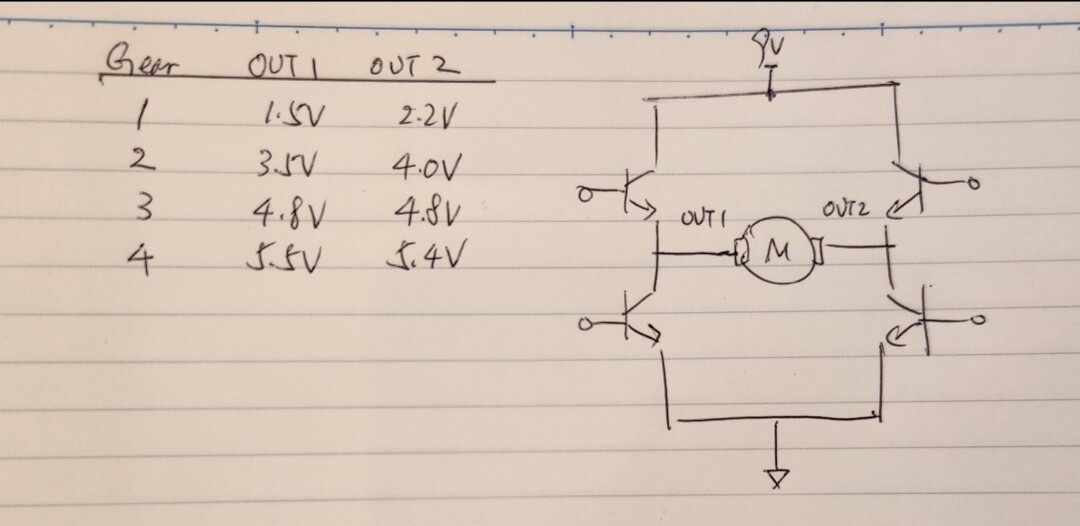 Gear OUT1 OUT2
1 1.5V 2.2V
2 3.5V 4.0V
3 4.8V 4.8V
4 5.5V 5.4V
9V
OUT1 OUT2
M